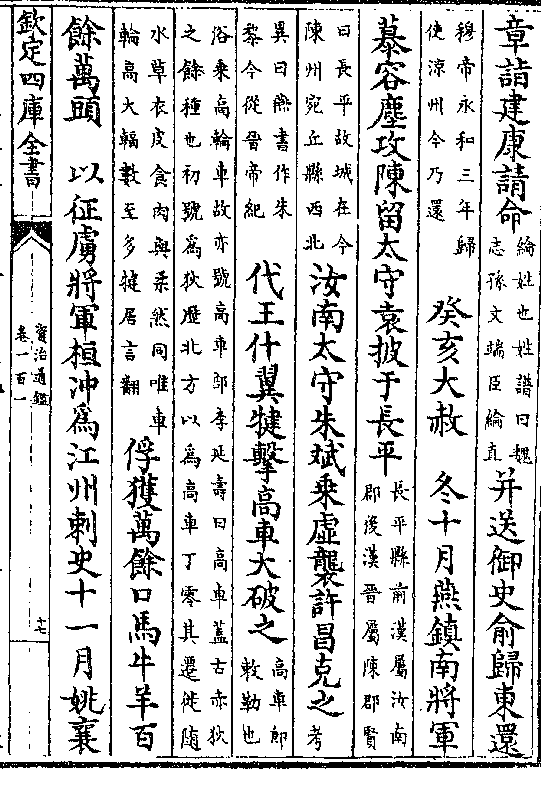 章詣建康請命
綸姓也姓譜曰魏
志孫文端臣綸直
并送御史俞歸東還
穆帝永和三年歸
使涼州今乃還
癸亥大赦　冬十月燕鎮南將軍
慕容塵攻陳留太守袁披于長平
長平縣前漢屬汝南
郡後漢晉屬陳郡賢
曰長平故城在今
陳州宛丘縣西北
汝南太守朱斌乘虛襲許昌克之
考
異曰燕書作朱
黎今從晉帝紀
代王什翼犍擊高車大破之
高車即
敕勒也
俗乘高輪車故亦號高車部李延壽曰高車蓋古赤狄
之餘種也初號爲狄歷北方以爲高車丁零其遷徙隨
水草衣皮食肉與柔然同唯車
輪高大輻數至多犍居言翻
俘獲萬餘口馬牛羊百
餘萬頭　以征虜將軍桓沖爲江州刺史十一月姚襄
欽定四庫全書
資治通鑑
卷一百一
十七